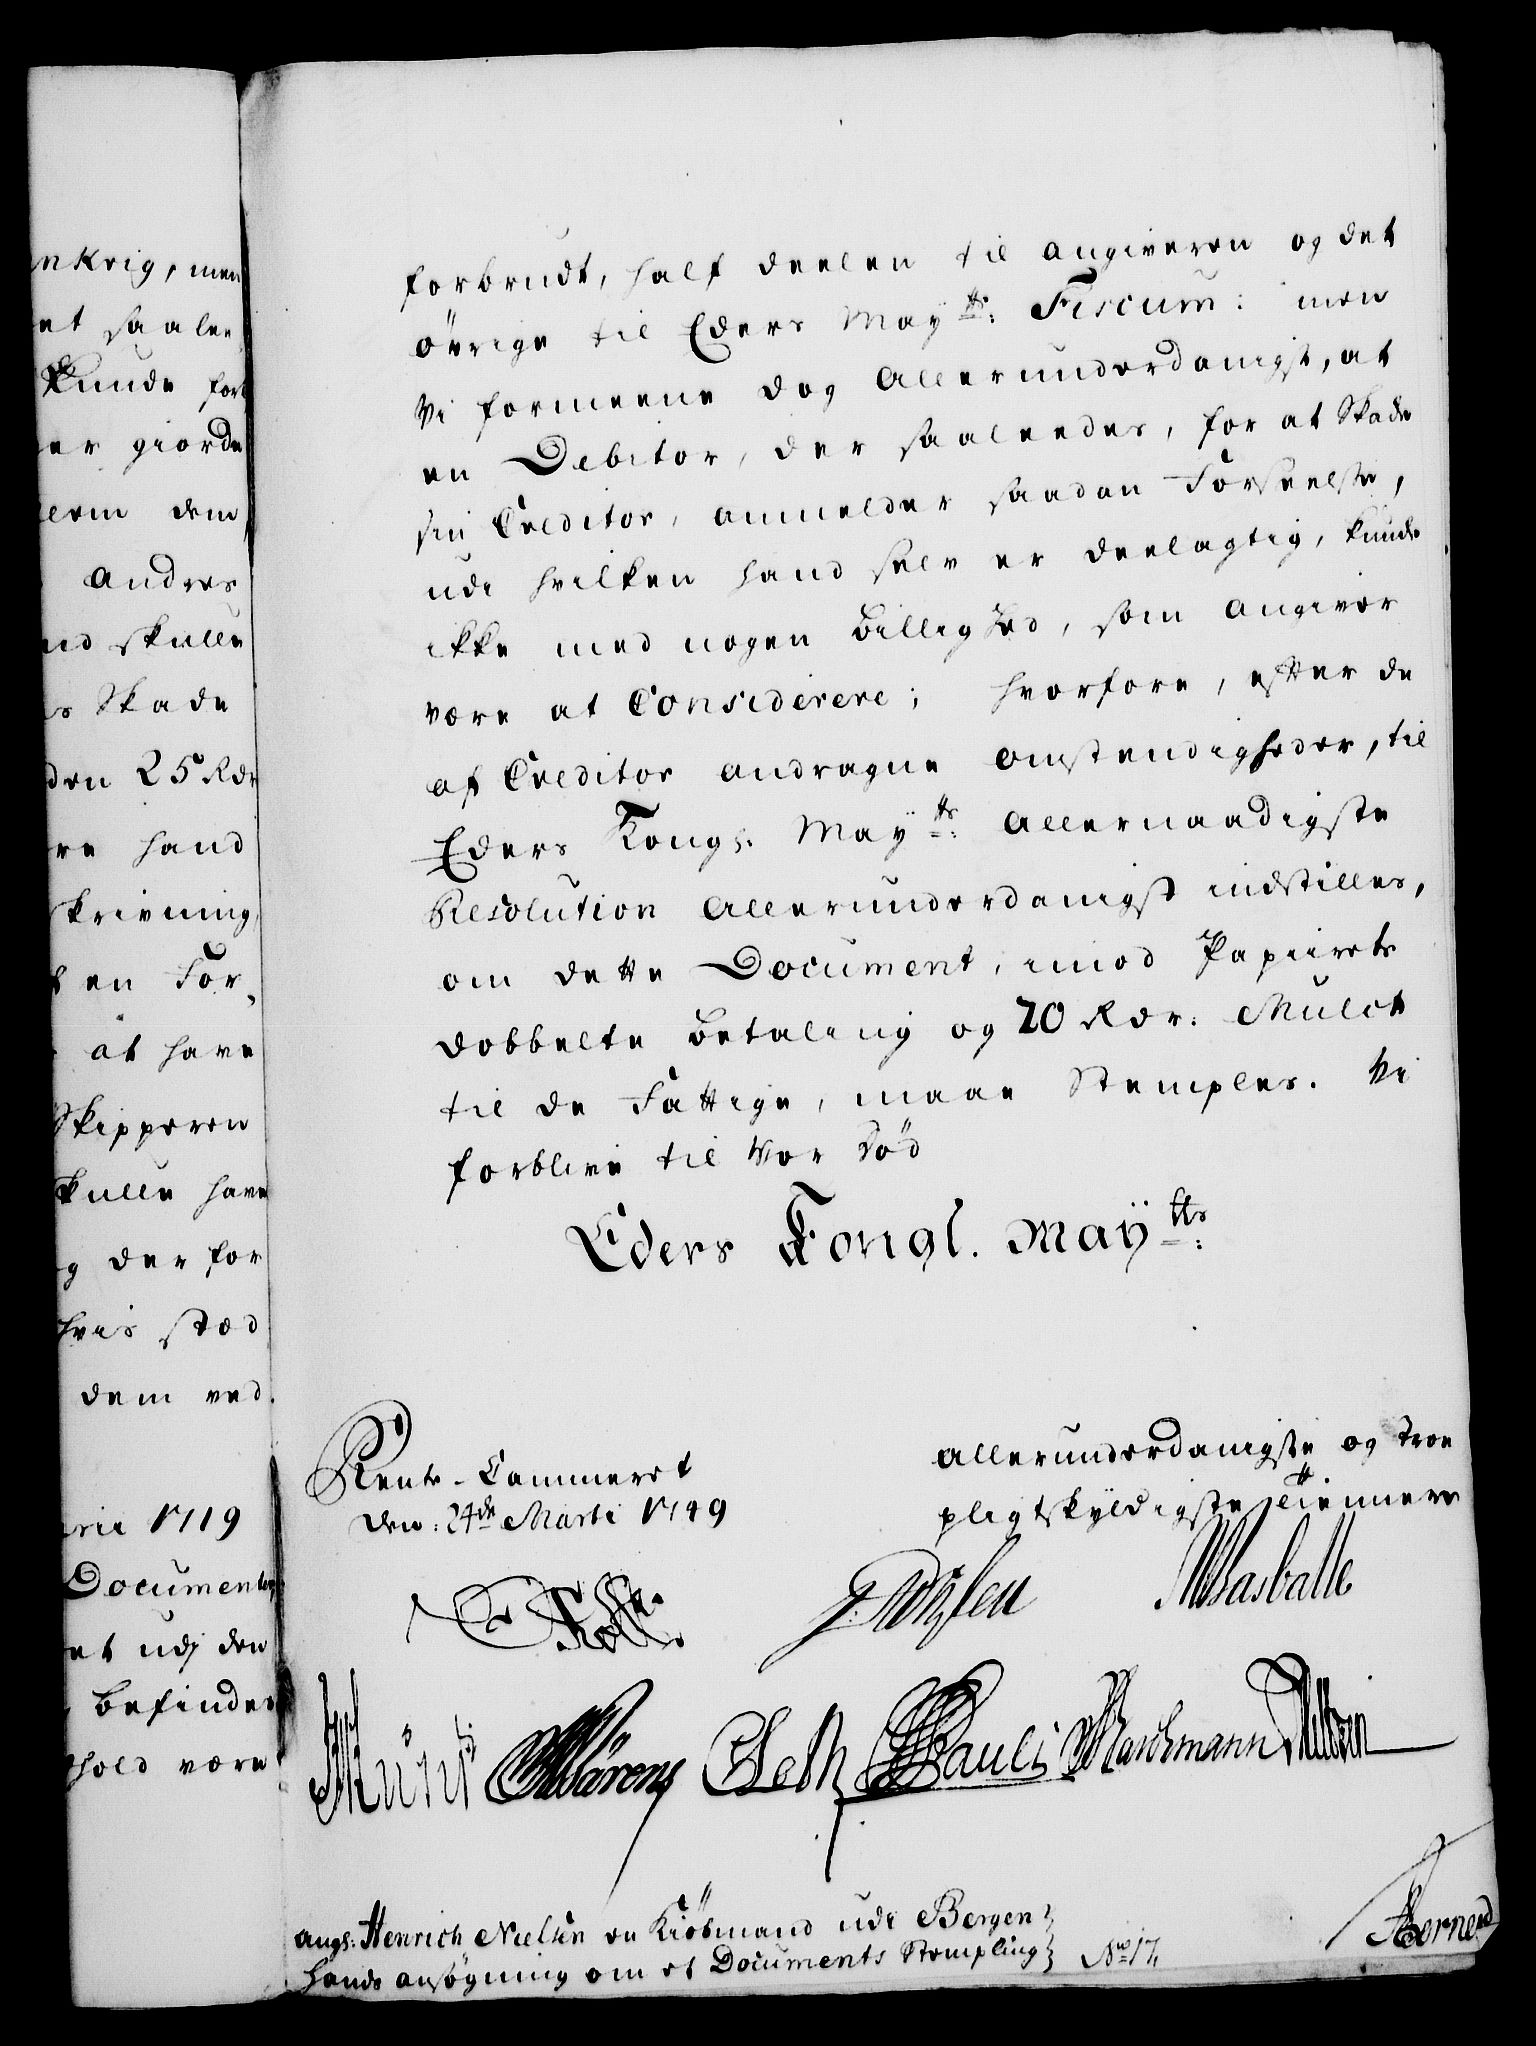 nkrig, men
et saalee
Kunde for
er giorde
dem
andres
nd skulle
s Skade
den 25 Rdr
re hand
skrivning
en For,
at have
Skipperen
skulle have
g der for
hvis stæd
dem ved.
1719
Documenter
et udj den
befindes
hold være
forbrudt, half deelen til angiveren og det
övrige til Eders Mayts: Fiscum: men
Vi formeene dog allerunderdanigst, at
en Debitor, der saaleedes, for at Skade
sin Creditor, anmelder saadan Forseelse,
udi hvilken hand selv er deelagtig, kunde
ikke med nogen billighed, som angiver
være at Considerere; hvorfore, efter de
af Creditor andragne omstendigheder, til
Eders Kongs. Mayts: allernaadigste
Resolution allerunderdanigst indstilles,
om dette Document, imod Papiirets
dobbelte betaling og 20 Rdr: Mulct
til de Fattige, maae Stemples. Vi
forblive til Vor död
Eders Kongl. Mayts:
Rente-Cammeret
den: 24de Marti 1749
allerunderdanigste og troe
pligtskyldigste tienere
Pauli
angs: Henrich Nielsen en Kiöbmand udi Bergen
hands ansögning om et Documents Stempling No 17,